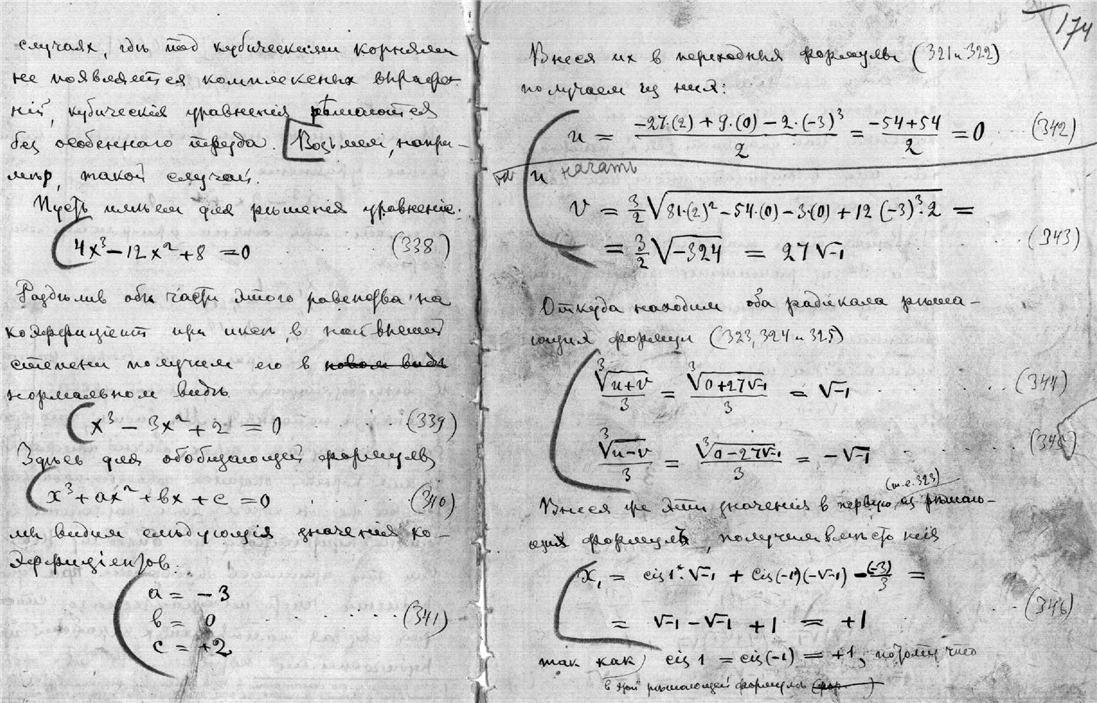 случаях, гдѣ под кубическими корнями
не появляется комплексных выраже-
нiй, кубическiя уравненiя рѣшаются
без особенного труда. Возьмем, напри-
мѣр, такой случай.
Пусть имѣем для рѣшенiя уравненiе.
4x³ − 12x² + 8 = 0 (338)
Раздѣлив обѣ части этого равенства на
коэффицiент при иксѣ в наивысшей
степени получим его в новом видѣ
нормальном видѣ
x³ − 3x² + 2 = 0 (339)
Здѣсь для обобщающей формулы
x³ + ax² + bx + c = 0 (340)
мы видим слѣдующiя значенiя ко-
эффицiентов:
a = −3
b = 0 (341)
c = +2
174
Внеся их в переходныя формулы (321 и 322)
получаем из них:
u = \frac{-27·(2) + 9·(0) − 2·(−3)³}{2} = \frac{−54+54}{2} = 0 (342)
и начать
v = \frac{3}{2}√(81·(2)² − 54·(0) − 3·(0) + 12(−3)³·2) =
= \frac{3}{2}√−324 = 27√−1 (343)
Откуда находим оба радикала рѣша-
ющих формул (323, 324 и 325)
\frac{∛(u+v)}{3} = \frac{∛(0+27√−1)}{3} = √−1 (344)
\frac{∛(u−v)}{3} = \frac{∛(0−27√−1)}{3} = −√−1 (345)
(т.е. 323)
Внеся же эти значенiя в первую из рѣшаю-
щих формул, получим вмѣсто нея
x₁ = cis 1·√−1 + cis(−1)(−√−1) − \frac{(−3)}{3} =
= √−1 − √−1 + 1 = +1 (346)
так как cis 1 = cis(−1) = +1, потому что
в этой рѣшающей формулѣ